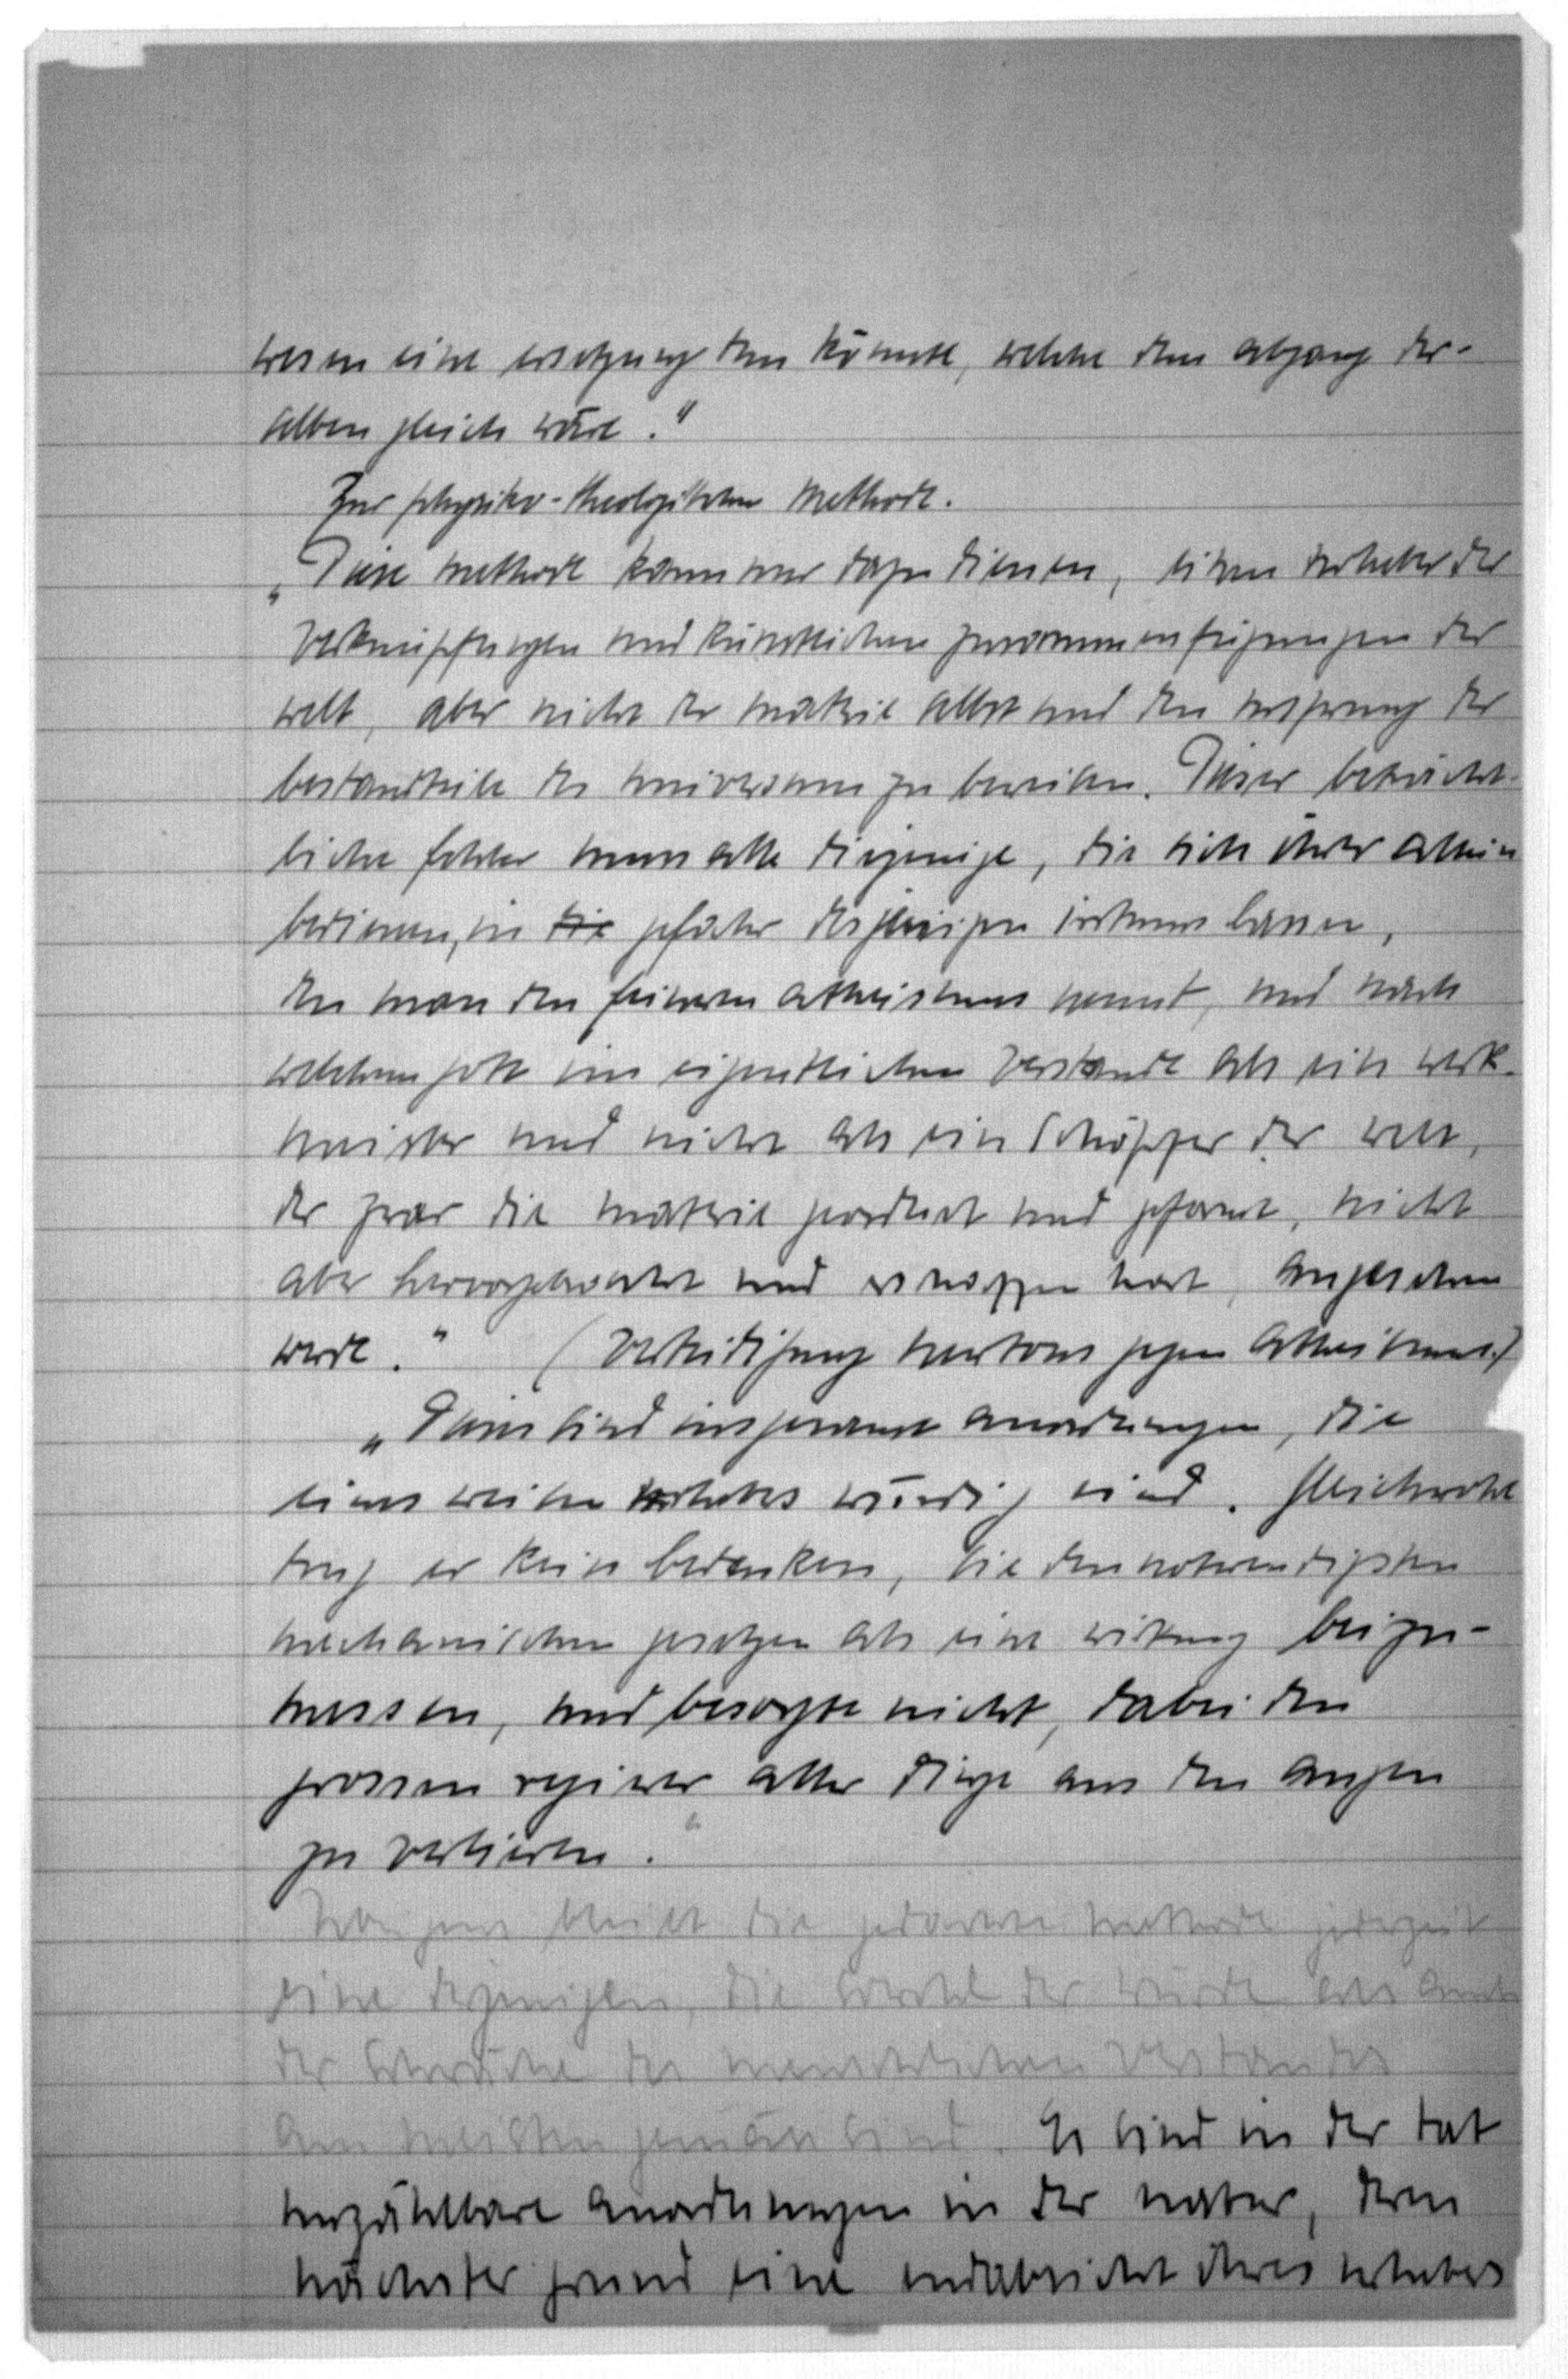 wesen eine ersetzung tun könnte, welche dem abgang der-
selben gleich wäre."
Zur physiko-theologischen methode.
„Diese methode kann nur dazu dienen, einen urheber der
verknüpfungen und künstlichen zusammenfügungen der
welt, aber nicht der materie selbst und den ursprung der
bestandteile des universums zu beweisen. Dieser beträcht-
liche fehler muss alle diejenige, die sich ihrer allein
bedienen, in die gefahr desjenigen irrtums lassen,
den man den feineren atheismus nennt, und nach
welchem gott im eigentlichen verstande als ein werk-
meister und nicht als ein Schöpfer der welt,
der zwar die materie geordnet und geformt, nicht
aber hervorgebracht und erschaffen hat, angesehen
werde." (Verteidigung newtons gegen atheismus)
„Dieses sind insgesamt anordnungen, die
eines weisen urhebers würdig sind. Gleichwohl
trug er kein bedenken, sie den notwendigsten
mechanischen gesetzen als eine wirkung beizu-
messen, und besorgte nicht, dabei den
grossen regierer aller dinge aus den augen
zu verlieren."
bleibt die gedachte methode jederzeit
eine derjenigen, die sowohl der würde als auch
der schwäche des menschlichen verstandes
am meisten gemäss sind. Es sind in der tat
unzählbare anordnungen in der natur, deren
nächster grund eine endabsicht ihres urhebers